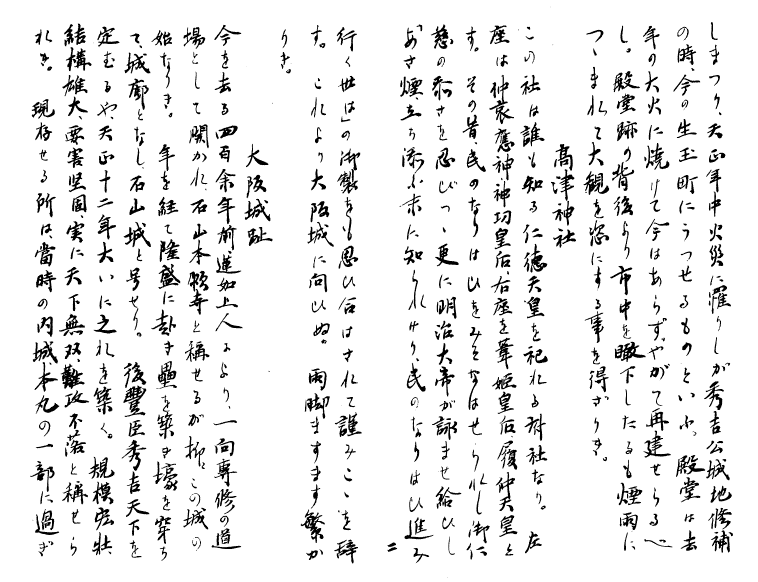 しまつり、天正年中火災に罹りしが秀吉公城地修補
の時、今の生玉町にうつせるものといふ。殿堂は去
年の大火に焼けて今はあらず、やがて再建せらるべ
し。殿堂跡の背後より市中を瞰下したるも煙雨に
つゝまれて大観を恣にする事を得ざりき。
高津神社
この社は誰も知る仁徳天皇を祀れる府社なり。左
座は仲哀應神神功皇后、右座を葦姫皇后履仲天皇と
す。その昔、民のなりはひをみそなはせられし御仁
慈の忝さを忍びつゝ更に明治大帝が詠ませ給ひし
「あさ煙、立ち添ふ末に知られけり、民のなりはひ進み
二
行く世は」の御製をも思ひ合はされて謹みこゝを辞
す。これより大阪城に向ひぬ。雨脚ますます繁か
りき。
大阪城趾
今を去る四百余年前蓮如上人により、一向専修の道
場として開かれ、石山本願寺と称せるが抑、この城の
始なりき。年を経て隆盛に赴き壘を築き壕を穿ち
て、城廓となし、石山城と号せり。後豐臣秀吉天下を
定むるや、天正十二年大いに之れを築く。規模宏壮
結構雄大、要害堅固、実に天下無双、難攻不落と称せら
れき。現存せる所は當時の内城、本丸の一部に過ぎ